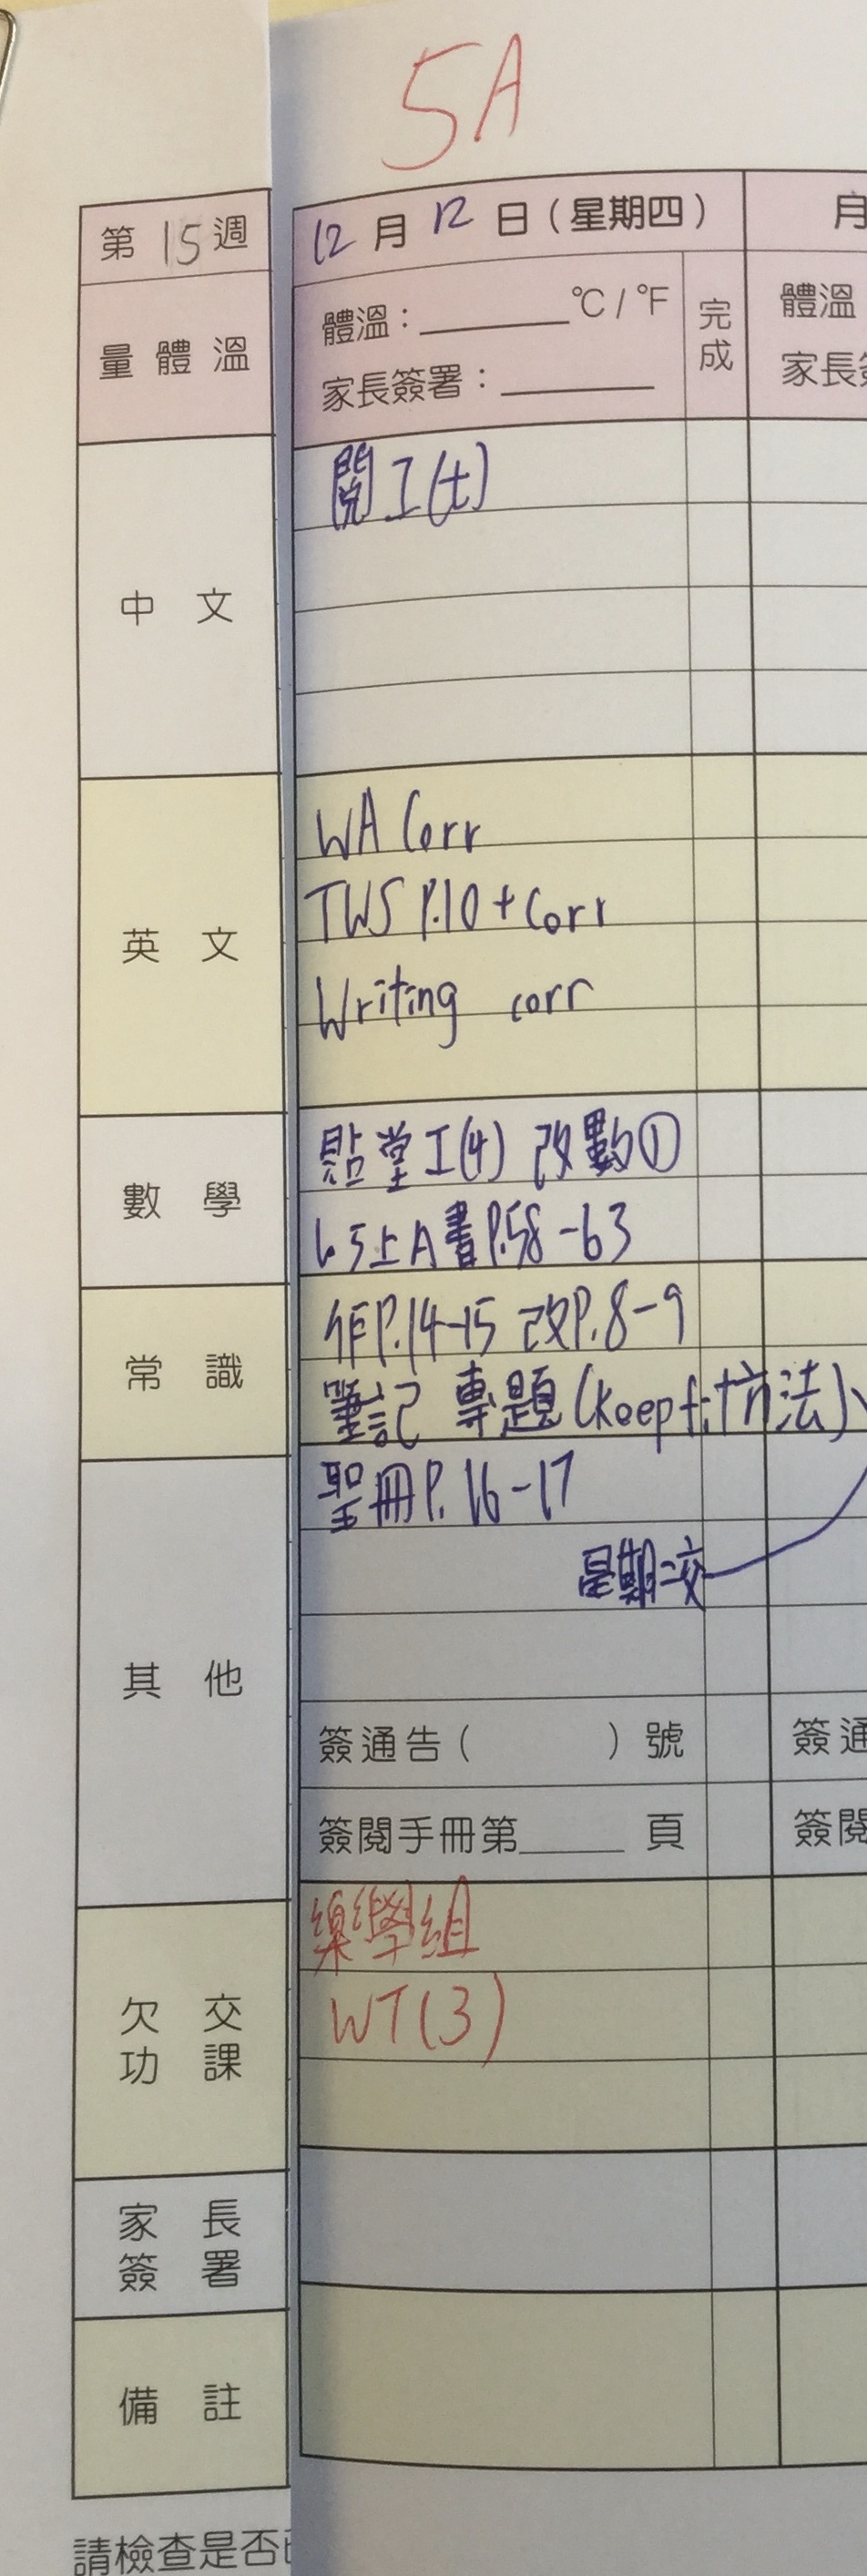 5A
第15週
12月12日(星期四)
月
量體溫
體溫:______°C/°F
完成
體溫
家長簽署:______
家長簽
中文
閱工(七)
英文
WA Corr
TWS P.10 + Corr
Writing corr
數學
貼堂工(4) 改數①
5上A書P.58-63
常識
作P.14-15 改P.8-9
筆記 專題(keep fit方法)
其他
聖冊P.16-17
星期二交
簽通告( )號
簽通
簽閱手冊第____頁
簽閱
欠交功課
樂學組
WT(3)
家長簽署
備註
請檢查是否已